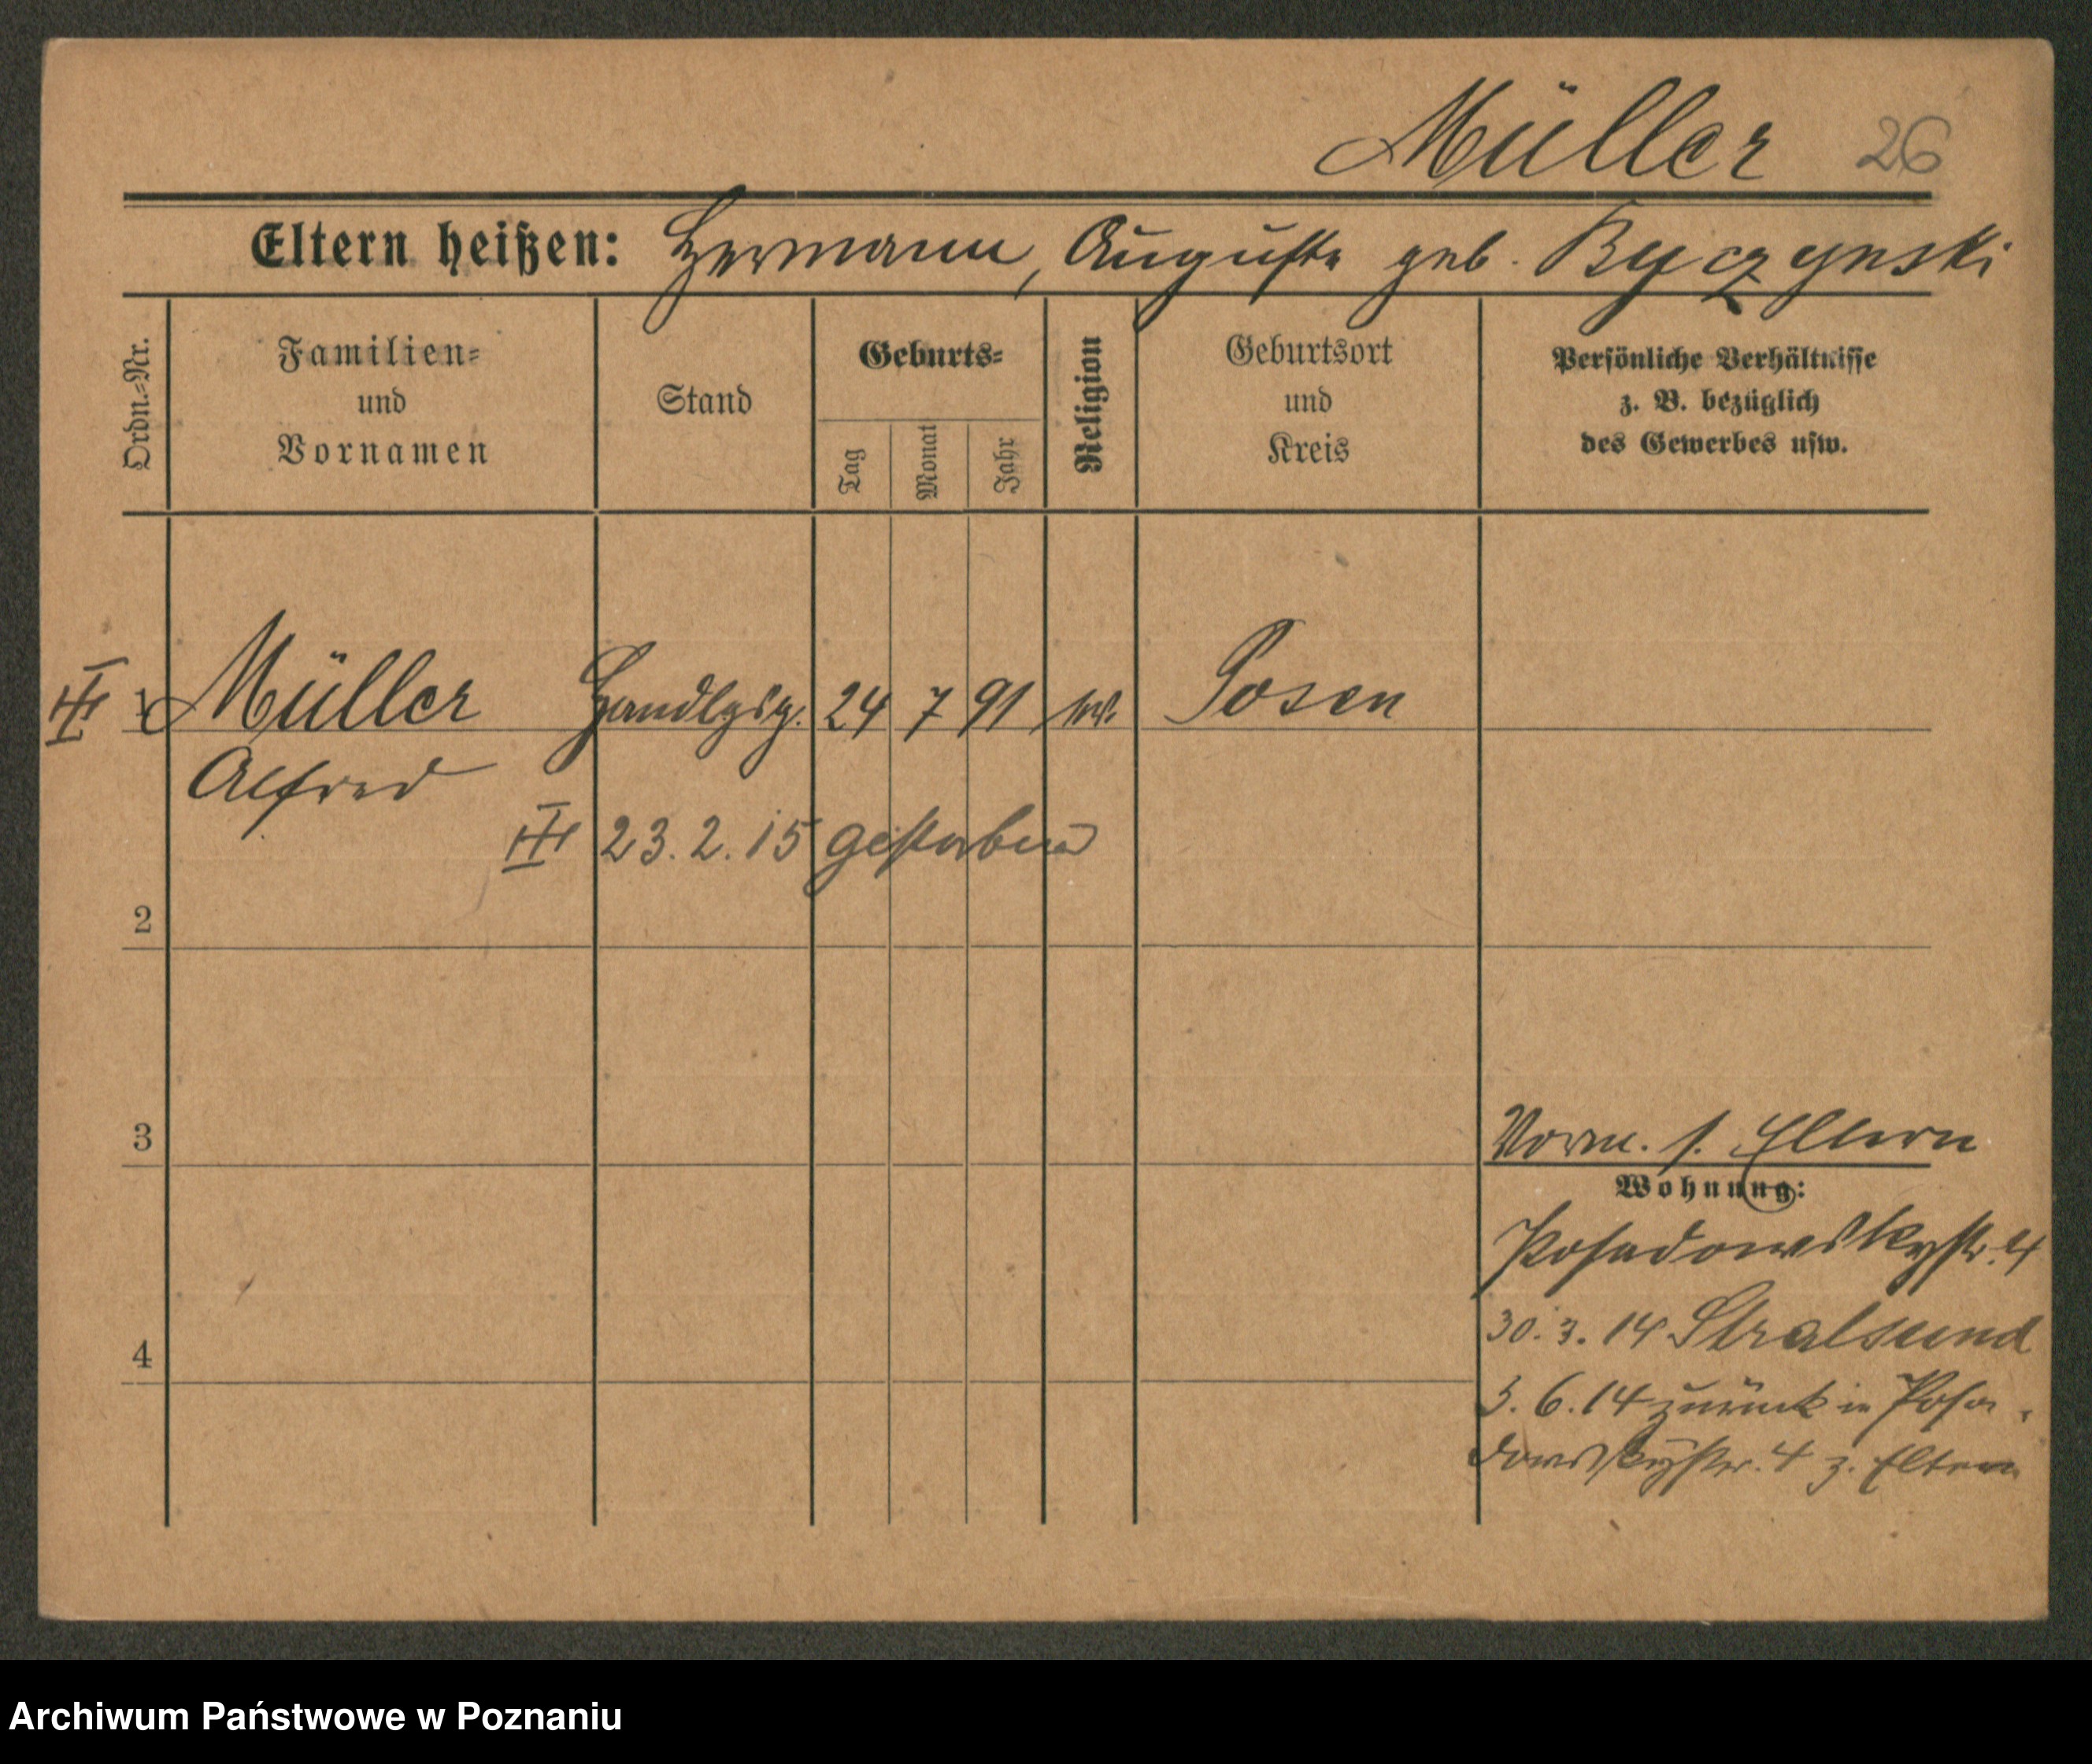 Müller 26
Eltern heißen: Hermann, Auguste geb. Byczynski
Ordn.-Nr.
Familien-
und
Vornamen
Stand
Geburts-
Tag
Monat
Jahr
Religion
Geburtsort
und
Kreis
Persönliche Verhältnisse
z. B. bezüglich
des Gewerbes usw.
III 1 Müller Handlgsg. 24 7 91 Posen
Alfred
III 23.2.15 gestorben
2
3
Vorm. s. Eltern
Wohnung:
Posadowskystr. 4
30.3.14 Stralsund
3.6.14 zurück in Posa-
dowskystr. 4 z. Eltern
4
Archiwum Państwowe w Poznaniu